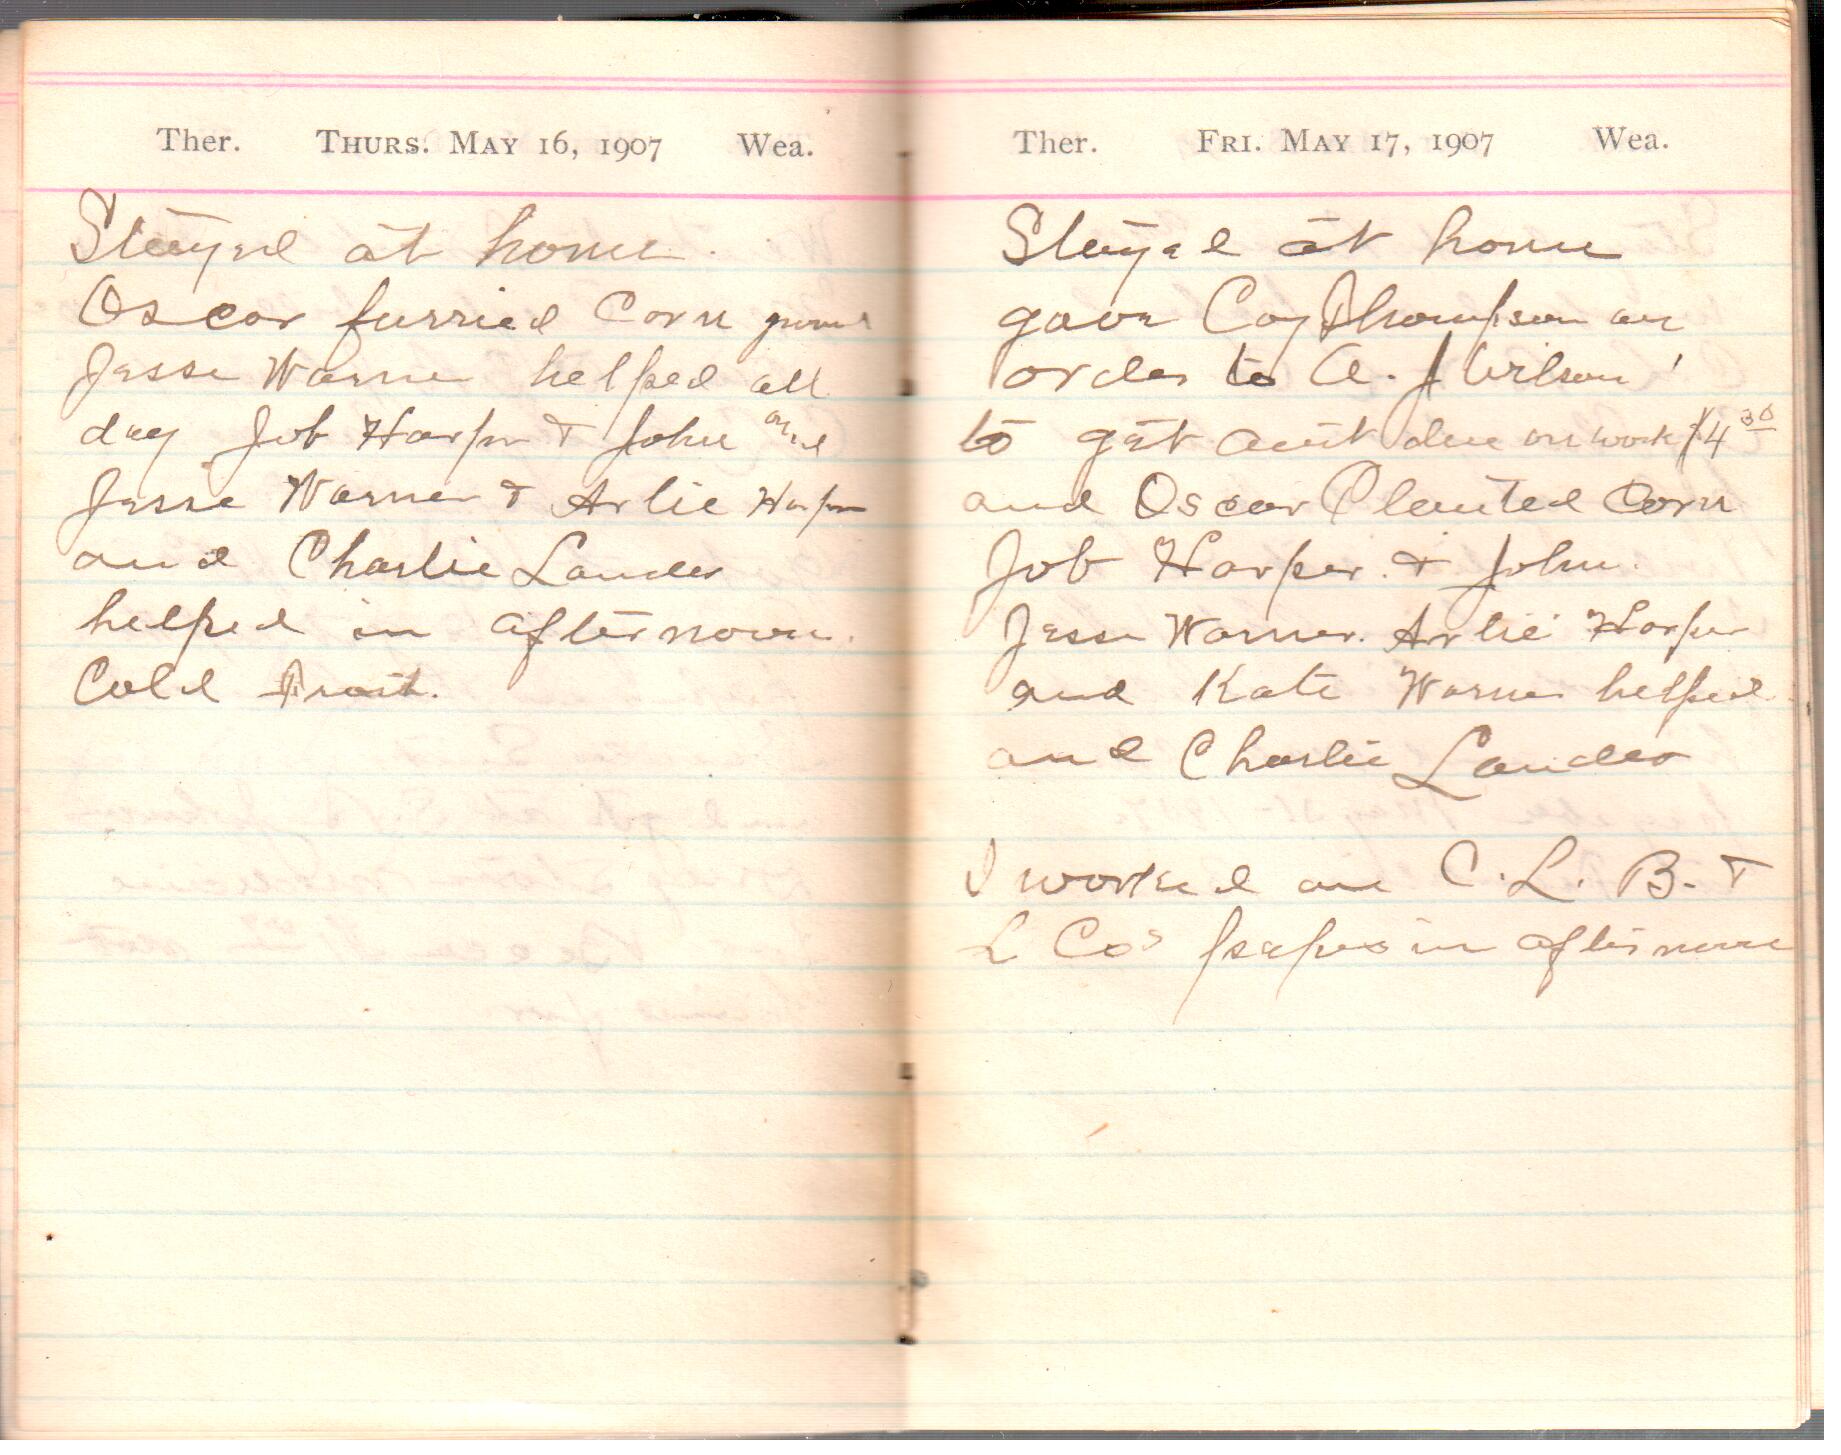 Ther. Thurs. May 16, 1907 Wea.
Stayed at home.
Oscar furried Corn ground
Jesse Warner helped all
day Job Harper & John and
Jesse Warner & Arlie Harper
and Charlie Lander
helped in afternoon.
Cold Frost.
Ther. Fri. May 17, 1907 Wea.
Stayed at home
gave Coy Thompson an
order to A. J Wilson
to get amt due on work $4 30
and Oscar Planted Corn
Job Harper. & John.
Jesse Warner. Arlie Harper
and Kate Warner helped
and Charlie Lander
I worked on C. L. B. &
L Cos papers in afternoon